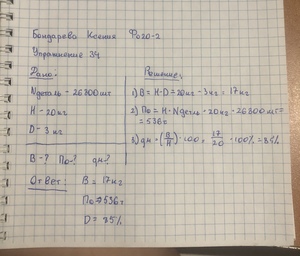 Бондарева Ксения Фо20-2
Упражнение 34
Дано: Решение:
Nдеталь - 26800 шт
H - 20 кг
D - 3 кг
1) B = H - D = 20 кг - 3 кг = 17 кг
2) По = H · Nдеталь = 20 кг · 26800 шт =
= 536 т
3) дн = (B/H) · 100 = 17/20 · 100% = 85%
B - ? По - ? дн - ?
Ответ: B = 17 кг
По = 536 т
D = 85%